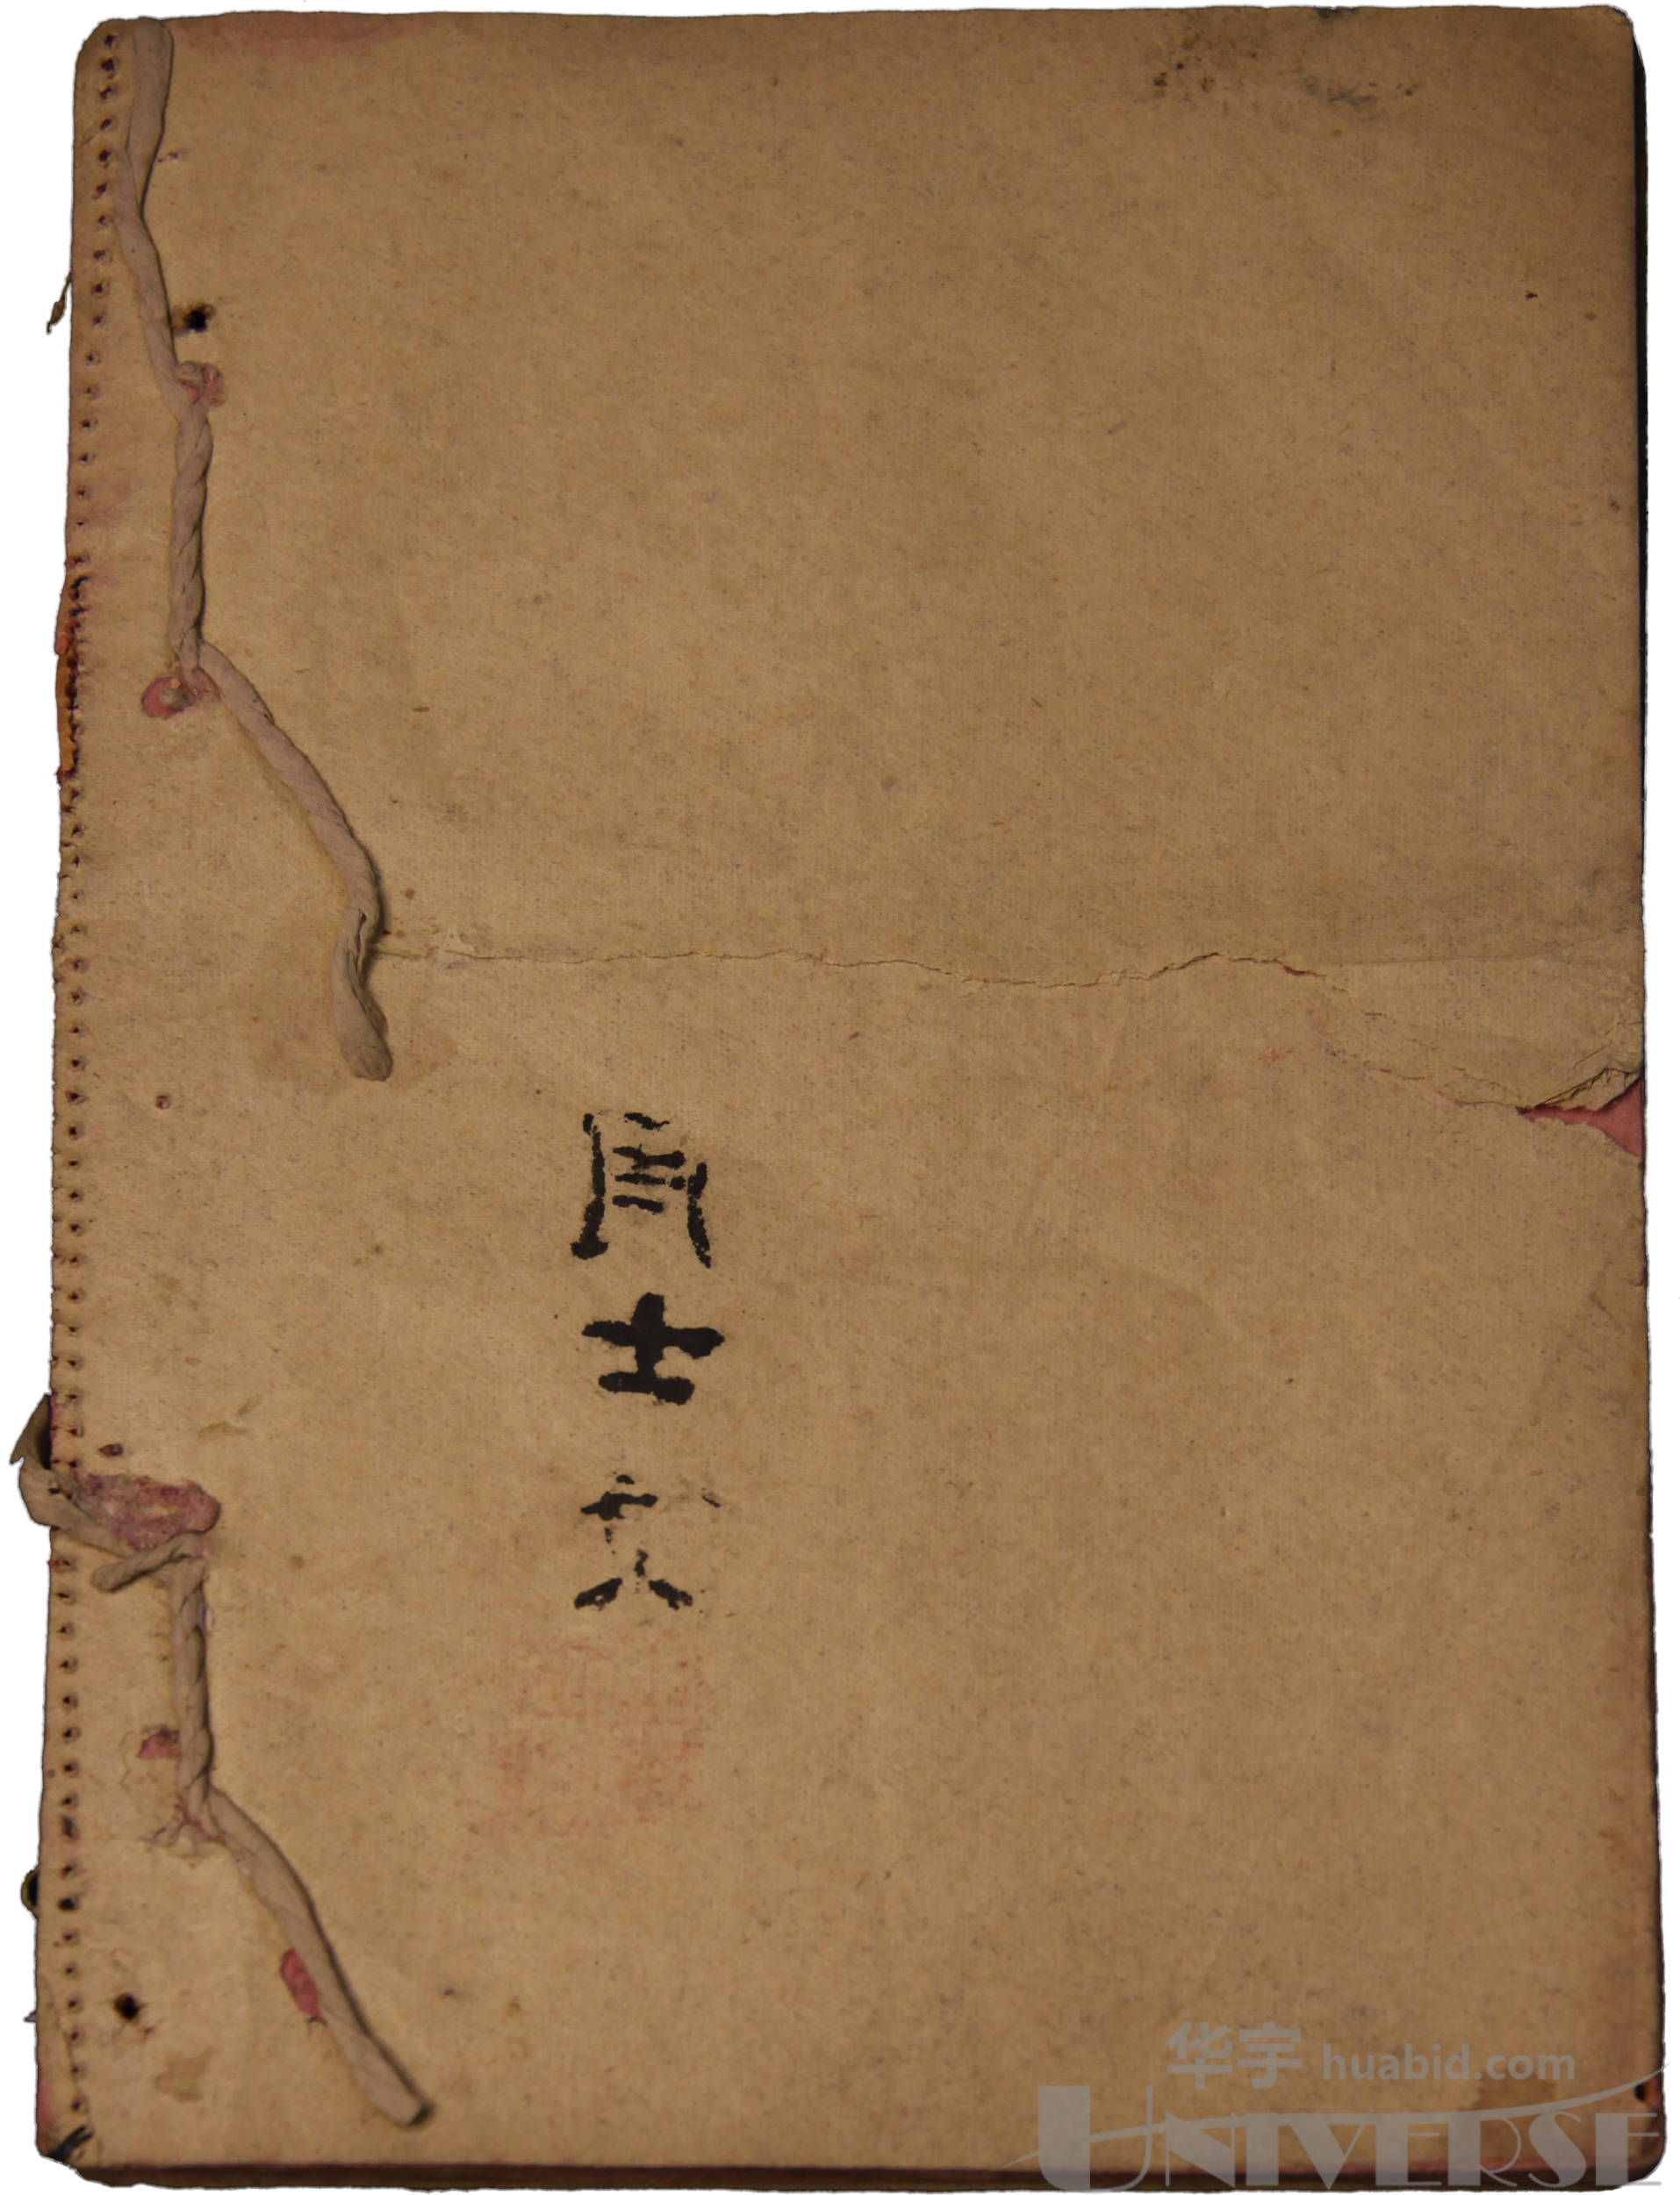 周士
华宇 huabid.com
UNIVERSE